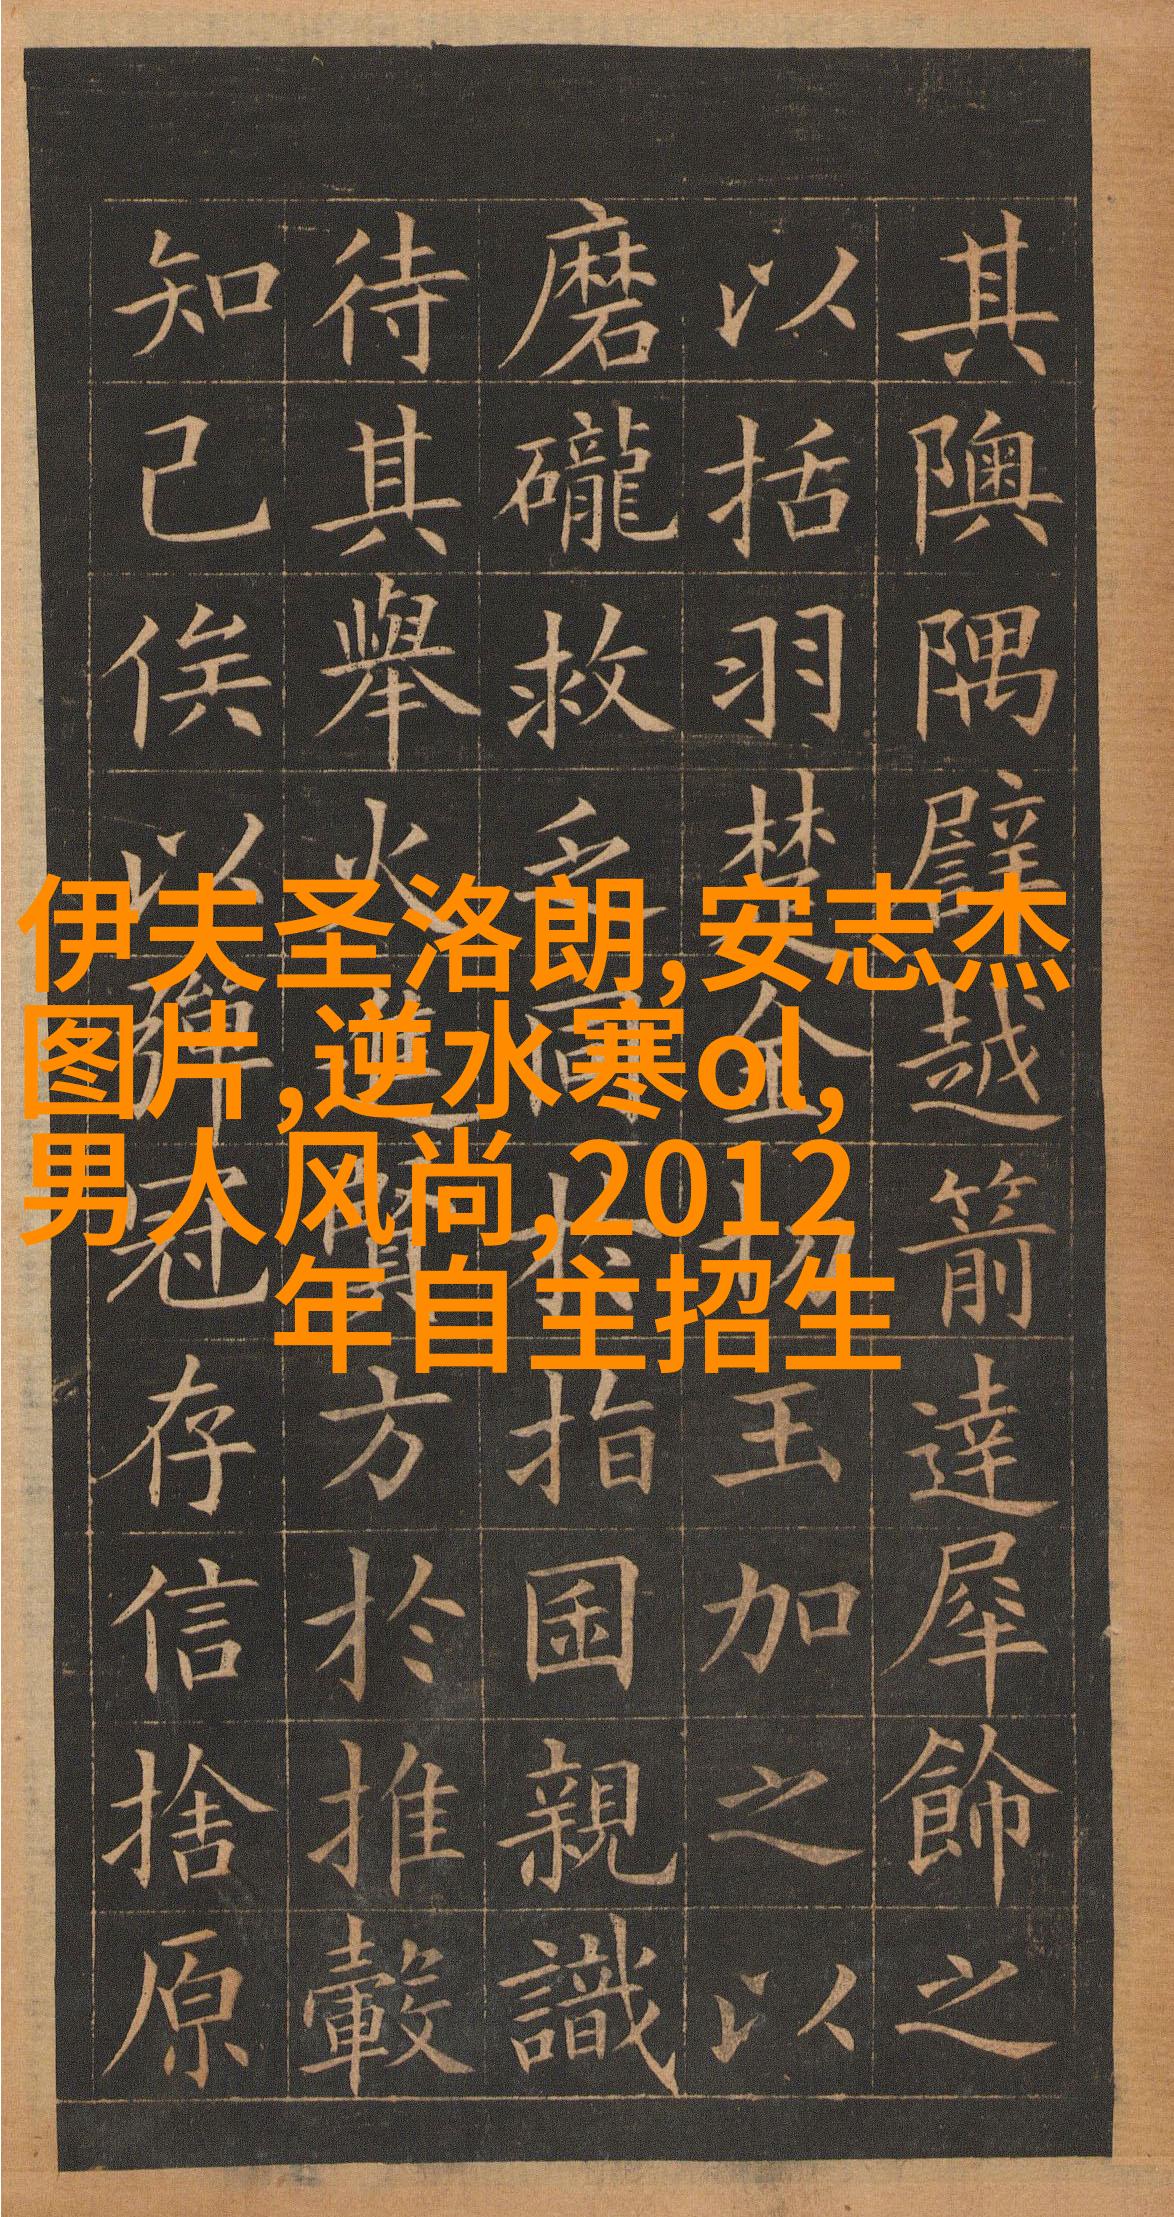 其隩隅譬越箭達犀飾之
以括羽楚金切王加之以
磨礲救乏同於指囷親識
待其舉火進賢方於推轂
知己俟以彈冠存信捨原
伊夫圣洛朗,安志杰
图片,逆水寒ol,
男人风尚,2012
年自主招生